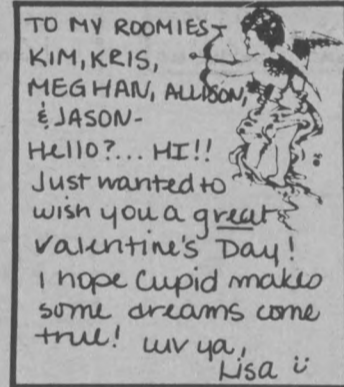 TO MY ROOMIES-
KIM, KRIS,
MEGHAN, ALLISON,
& JASON-
Hello?... HI!!
Just wanted to
wish you a great
Valentine's Day!
I hope Cupid makes
some dreams come
true! Luv ya,
Lisa ü